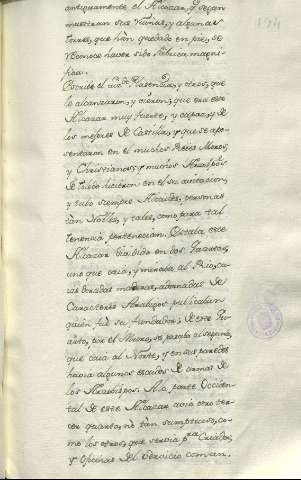 antiguamente el Alcazar, y segun
muestran sus ruinas, y algunas
torres, que han quedado en pie, se
reconoce haver sido fabrica magni-
fica.
Escribe el de Plasencia, y otros, que
lo alcanzaron, y vieron, que era este
Alcazar muy fuerte, y capaz, y de
los mejores de Castilla, y que se apo-
sentaron en el muchos Reies Moros,
y Christianos; y muchos Arzobispos
de Toledo hicieron en el su avitacion,
y tubo siempre Alcaides, personas
tan Nobles, y tales, como para tal
tenencia pertenecian. Estaba este
Alcazar dividido en dos Quartos;
uno que caia, y miraba al Rio, cu-
ias doradas maderas, adornadas de
Caracteres Arabigos publicaban
quien fue su fundador; de este Qu-
arto, por el Muro, se pasaba al segundo,
que caia al Norte, y en sus paredes
havia algunos escudos de armas de
los Arzobispos. A la parte Occiden-
tal de este Alcazar avia otro ter-
cer quarto, no tan sumptuoso, co-
mo los otros, que servia pra Criados,
y Oficinas del servicio comun.